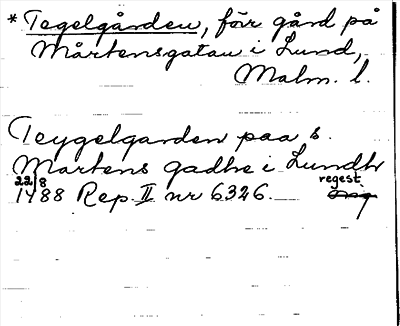 * Tegelgården, förr gård på
Mårtensgatan i Lund,
Malm. l.
Teygelgarden paa s.
Martens gadhe i Lundh
22/8 regest
1488 Rep. II nr 6326. Orig